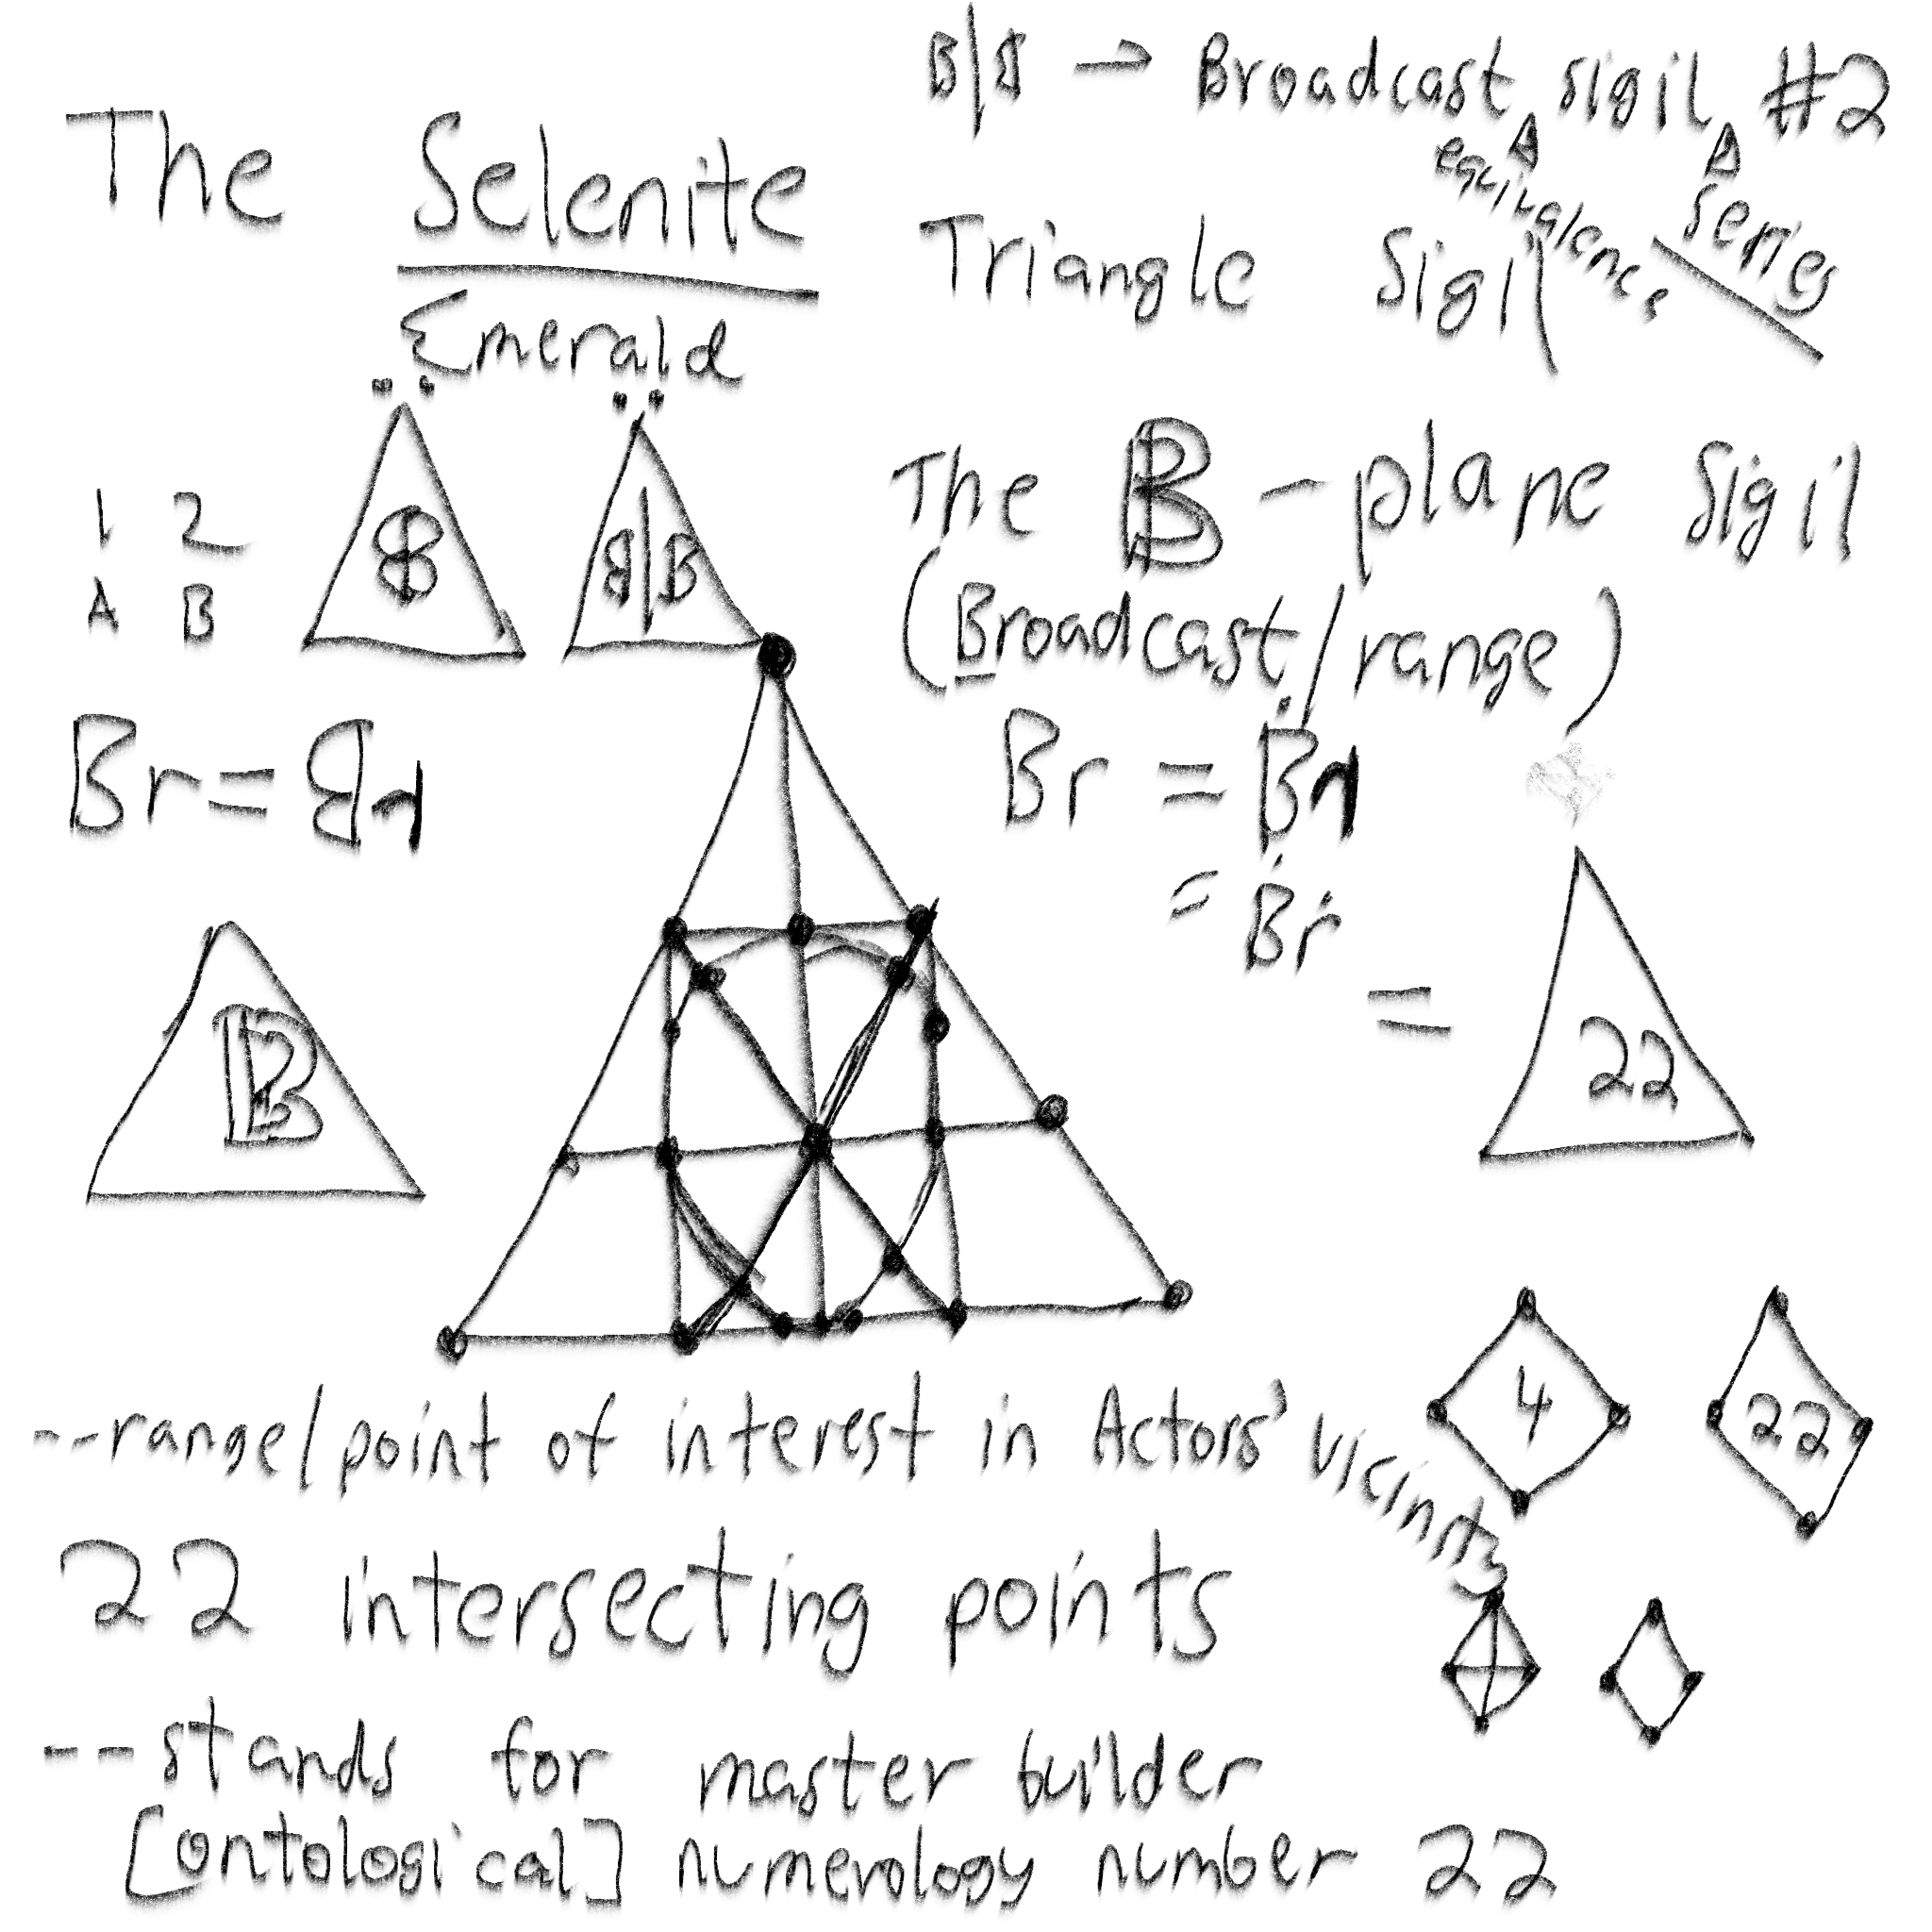 B|B → Broadcast sigil #2
equivalence series
The Selenite
Emerald
Triangle Sigil
The B-plane Sigil
(Broadcast/range)
1 2
A B
B
B|B
Br=Br
Br = Br
= Br
B
= 22
--range/point of interest in Actors' vicinity
4
22
22 intersecting points
--stands for master builder
[ontological] numerology number 22